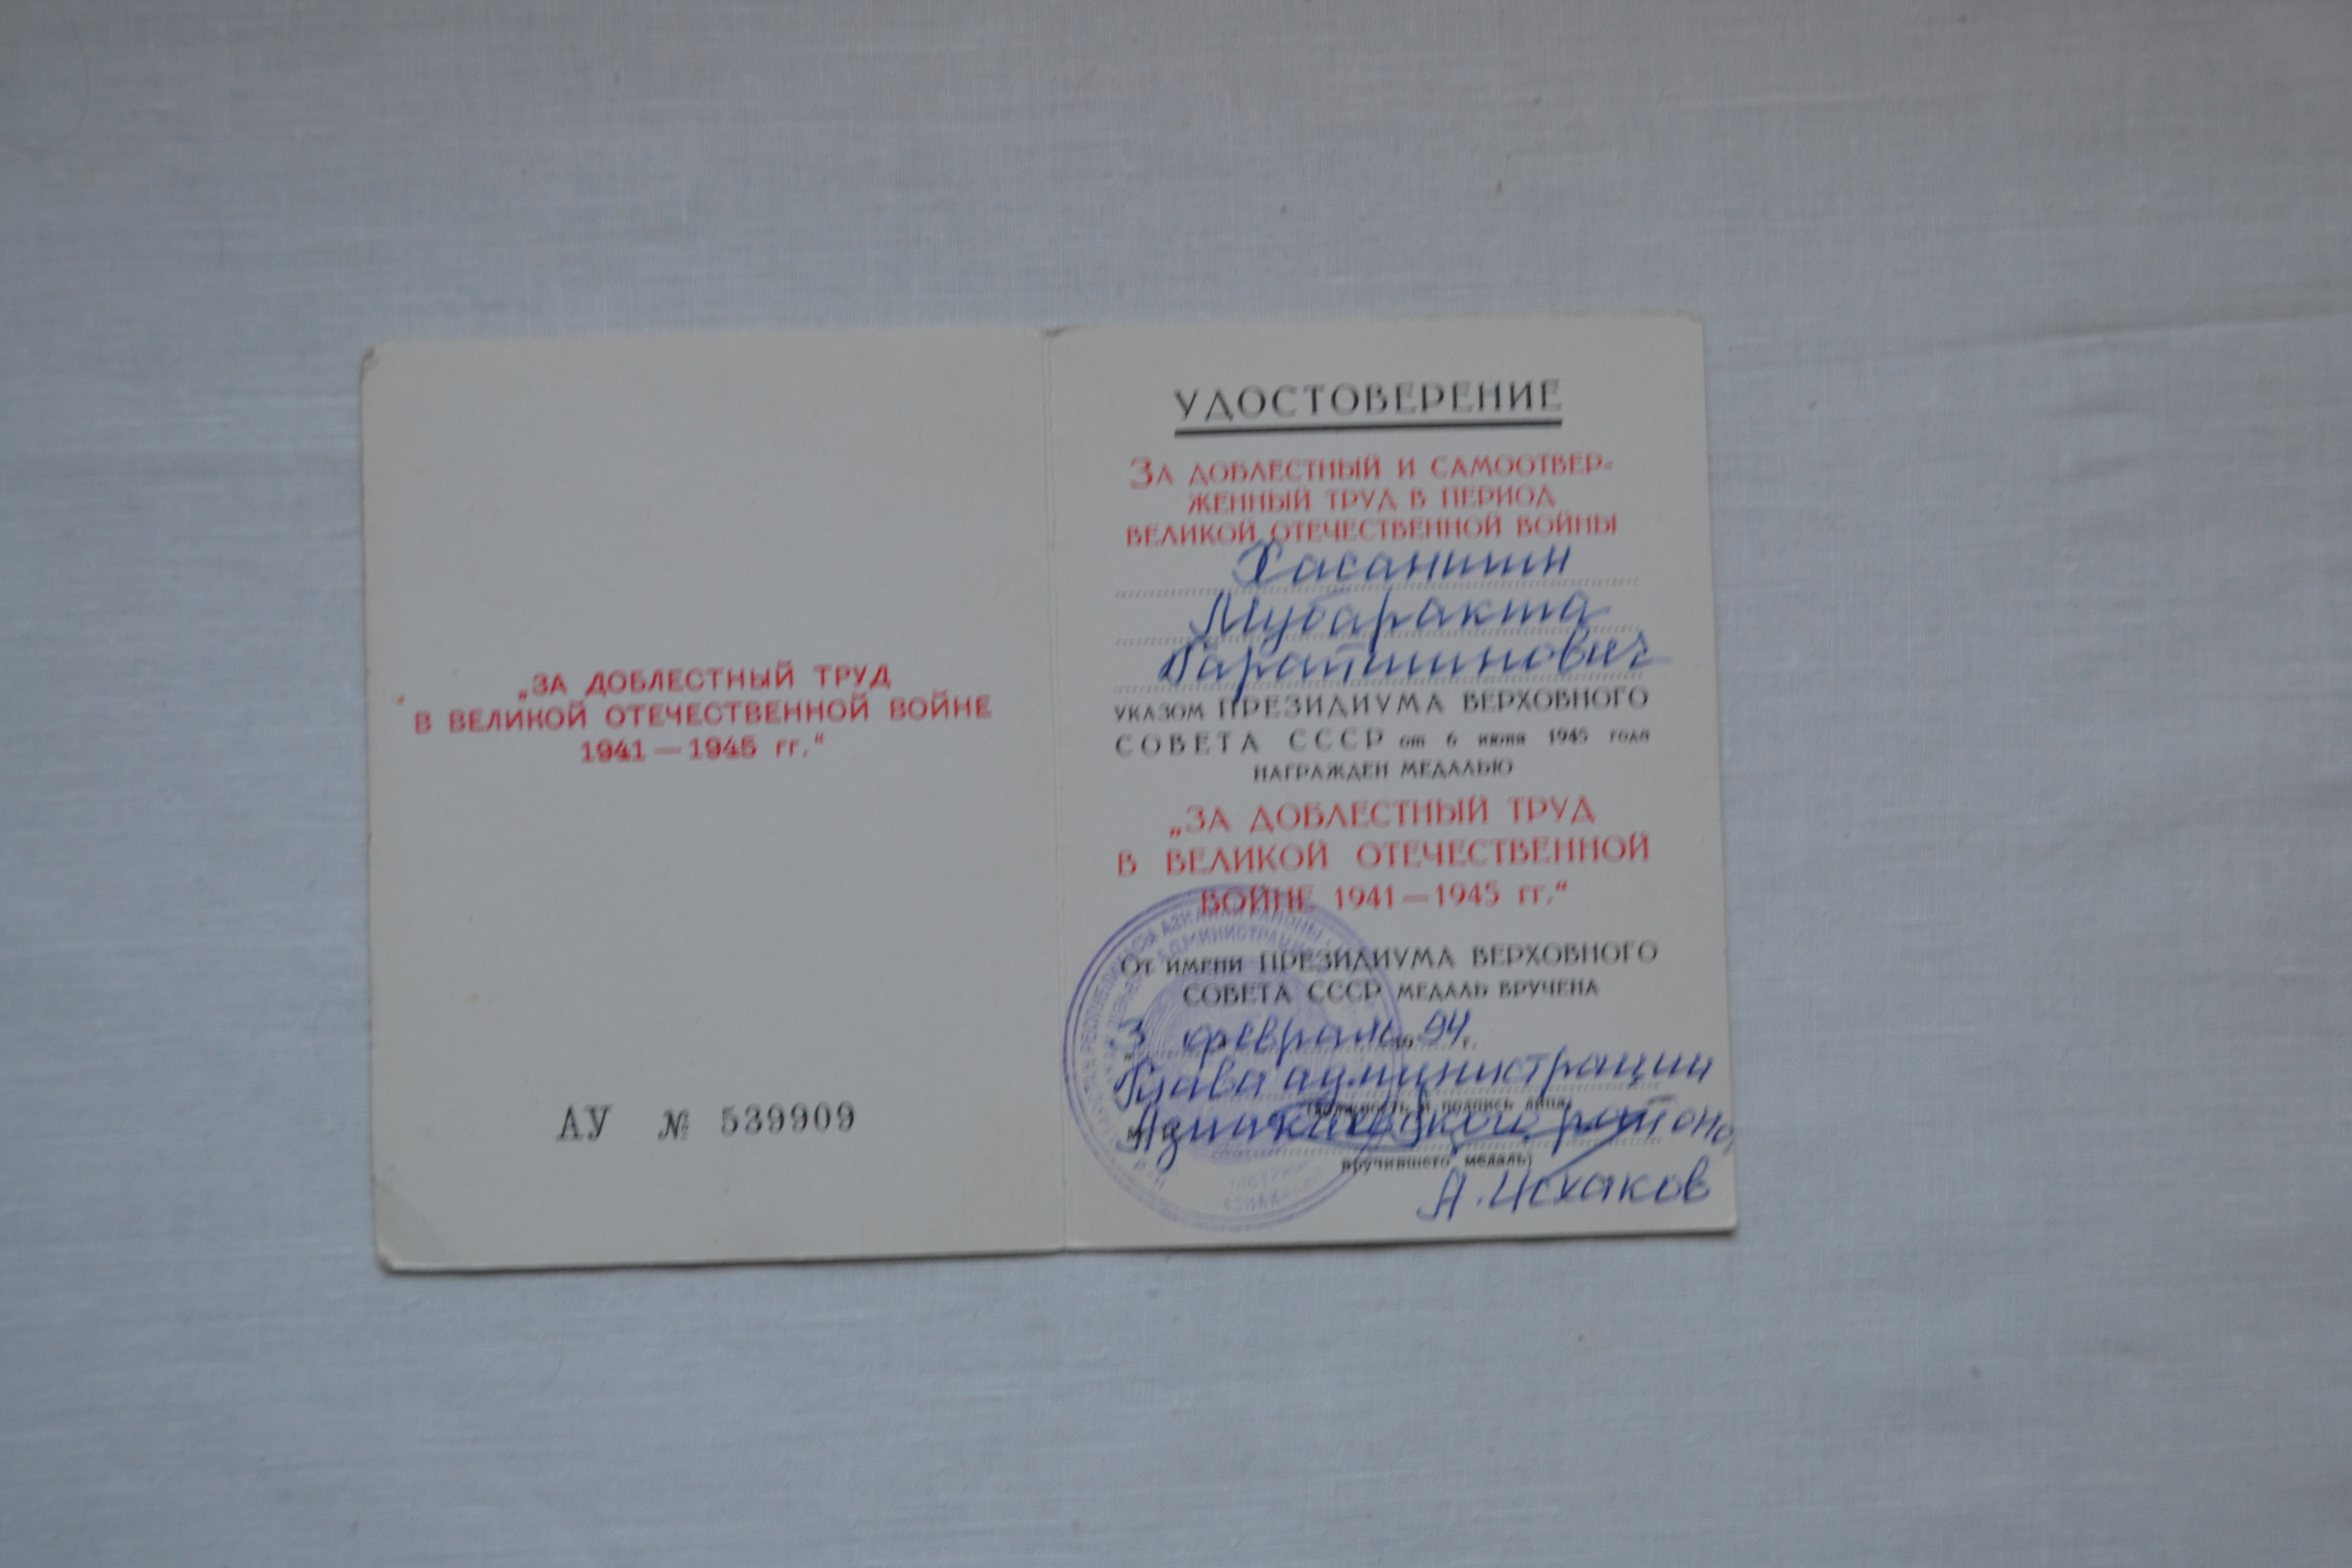 „ЗА ДОБЛЕСТНЫЙ ТРУД
В ВЕЛИКОЙ ОТЕЧЕСТВЕННОЙ ВОЙНЕ
1941—1945 гг.“
АУ № 539909
УДОСТОВЕРЕНИЕ
ЗА ДОБЛЕСТНЫЙ И САМООТВЕР-
ЖЕННЫЙ ТРУД В ПЕРИОД
ВЕЛИКОЙ ОТЕЧЕСТВЕННОЙ ВОЙНЫ
Хасаншин
Мубаракша
Гарапшинович
УКАЗОМ ПРЕЗИДИУМА ВЕРХОВНОГО
СОВЕТА СССР от 6 июня 1945 года
НАГРАЖДЕН МЕДАЛЬЮ
„ЗА ДОБЛЕСТНЫЙ ТРУД
В ВЕЛИКОЙ ОТЕЧЕСТВЕННОЙ
ВОЙНЕ 1941—1945 гг.“
От имени ПРЕЗИДИУМА ВЕРХОВНОГО
СОВЕТА СССР МЕДАЛЬ ВРУЧЕНА
„3 февраль 94 г.
Глава администрации
(должность и подпись лица,
Азнакаевского района
вручившего медаль)
А. Исхаков